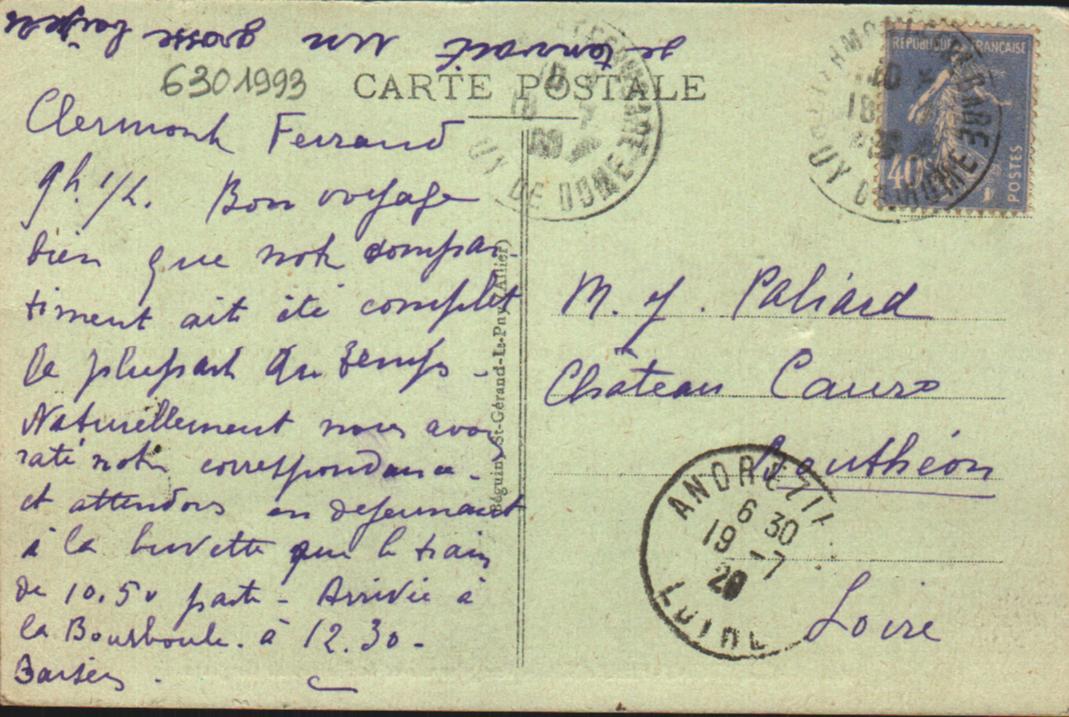 6301993
CARTE POSTALE
Clermont Ferrand
9h 1/2. Bon voyage
bien que notre compar-
timent ait été complet
la plupart du temps -
Naturellement nous avons
raté notre correspondance -
et attendons en dejeunant
à la buvette que le train
de 10.50 parte - Arrivée à
la Bourboule à 12.30 -
Baisers.
Béguin, St-Gérand-Le-Puy (Allier)
PUY DE DOME
REPUBLIQUE FRANÇAISE
40c
POSTES
PUY DE DOME
M. J. Paliard
Château Cauro
Bouthéon
Loire
ANDRÉZI
6 30
19 -7
LOIRE